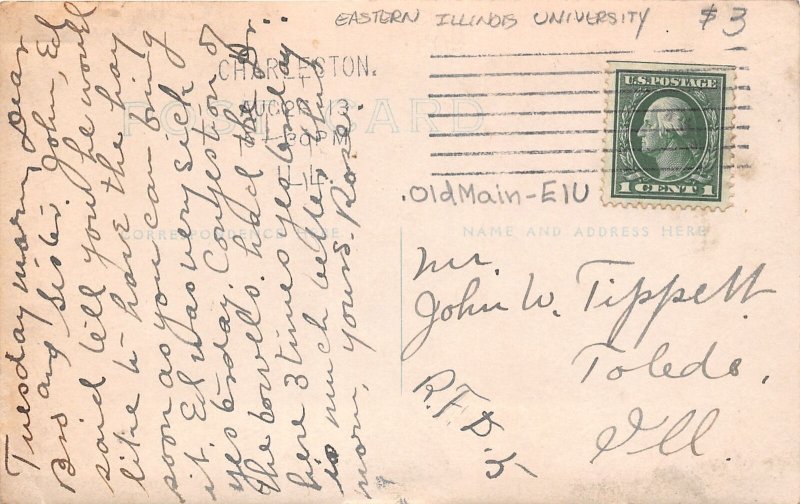 EASTERN ILLINOIS UNIVERSITY $3
CHARLESTON.
AUG 26 13
POST CARD
ILL
U.S. POSTAGE
1 CENT 1
Old Main-EIU
CORRESPONDENCE HERE
NAME AND ADDRESS HERE
Mr.
John W. Tippett
Toledo,
Ill.
R.F.D. 5
Tuesday morn, Dear
Bro and Sister. John, Ed
said tell you he would
like to have the hay
soon as you can bring
it. Ed was very sick
yesterday. Congestion of
the bowells. had the Dr.
here 3 times yesterday
is much better this
morn, yours. Rose